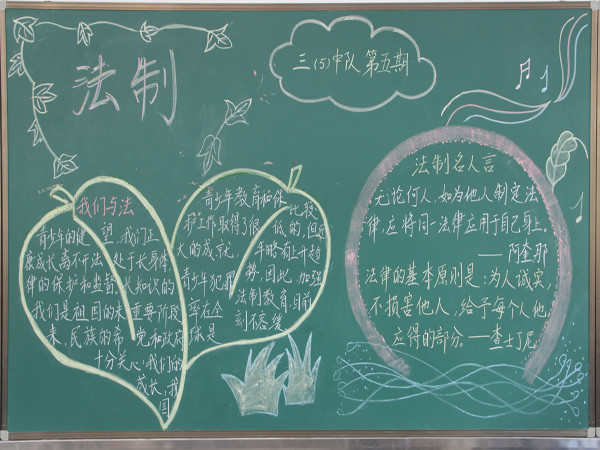 法制
三(5)中队 第五期
我们与法
青少年的健
康成长离不开法
律的保护和监督,
我们是祖国的未
来,民族的希
望,我们正
处于长身体
长知识的
重要阶段
党和政府
十分关心我们的
成长,我
国
青少年教育和保
护工作取得了很
大的成就,
青少年犯罪
率在全
球是
比较
低的,但近
年略有上升趋
势,因此,加强
法制教育目前
刻不容缓
法制名人言
无论何人,如为他人制定法
律,应将同一法律应用于自己身上。
——阿奎那
法律的基本原则是:为人诚实,
不损害他人,给予每个人他
应得的部分。——查士丁尼